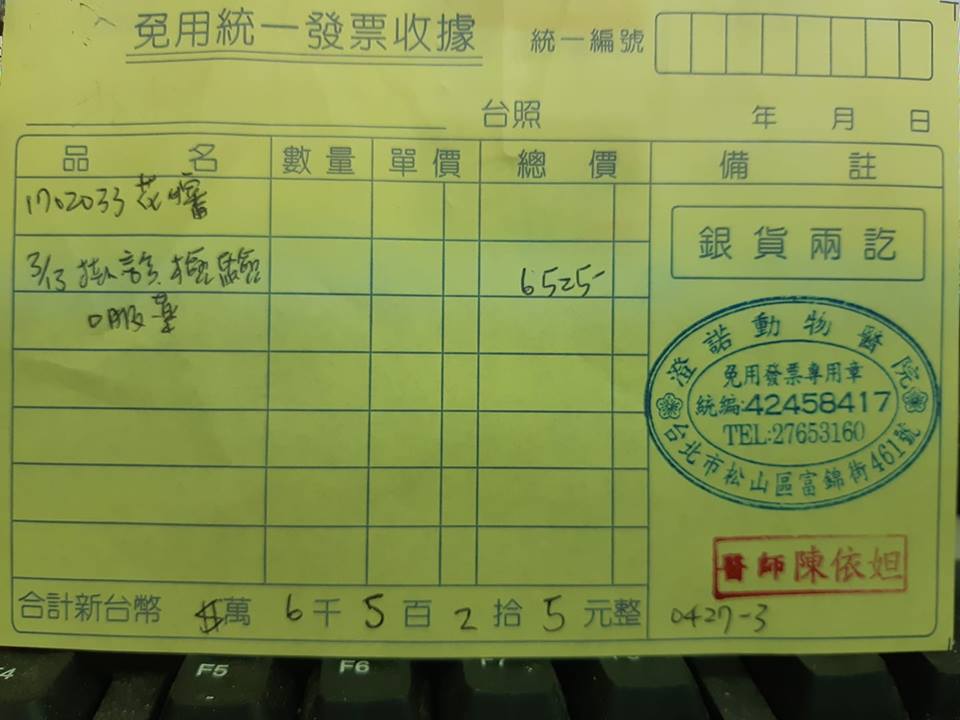 免用統一發票收據
統一編號
台照 年 月 日
品名 數量 單價 總價 備註
1702033 花
銀貨兩訖
3/13 掛診.檢驗 6525-
口服藥
澄諾動物醫院
免用發票專用章
統編:42458417
TEL:27653160
台北市松山區富錦街461號
醫師陳依妲
合計新台幣 萬 6 千 5 百 2 拾 5 元整
0427-3
F4 F5 F6 F7